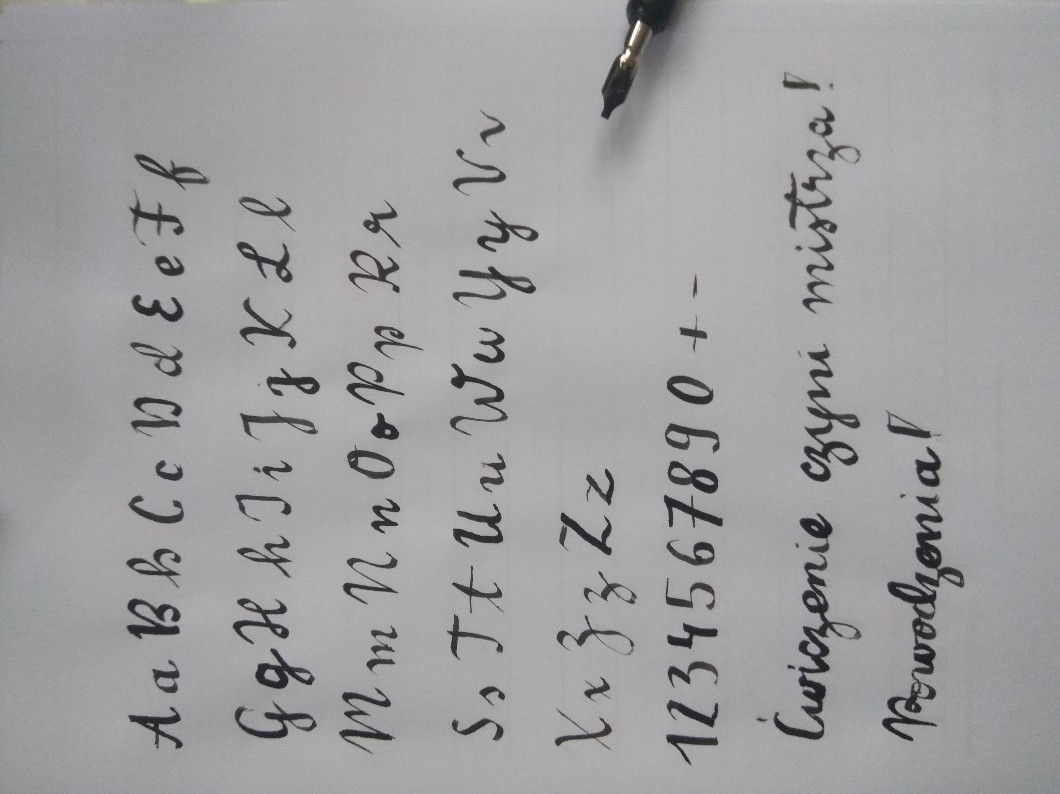 A a B b C c D d E e F f
G g H h I i J j K L l
M m N n O o P p R r
S s T t U u W w Y y V v
X x Z z Z z
1 2 3 4 5 6 7 8 9 0 + -
Ćwiczenie czyni mistrza!
Powodzenia!